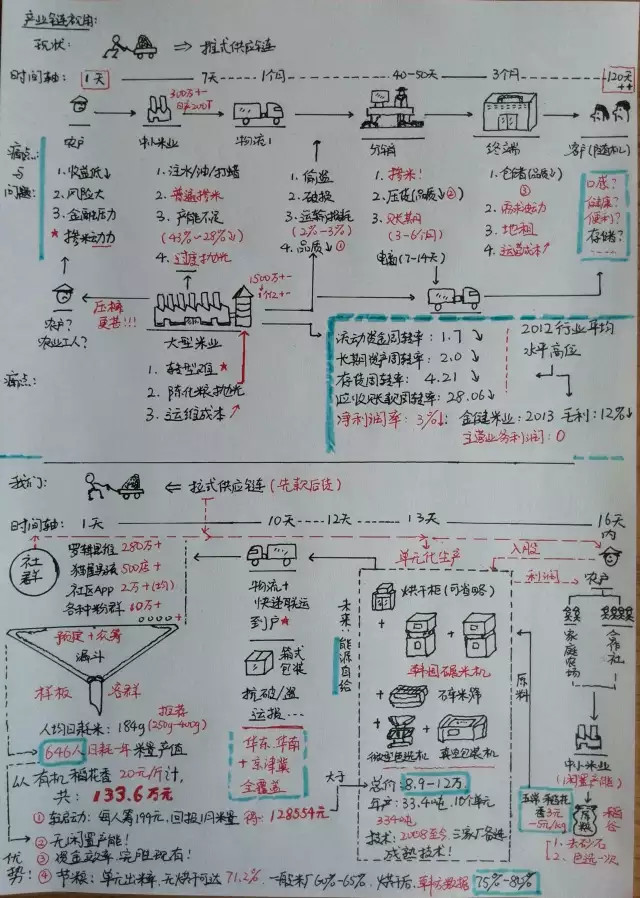 产业链视角:
现状: ⇒ 推式供应链
时间轴: 1天 7天 1个月 40-50天 3个月 120天++
300万+-
日产200T
农户 中小米业 物流1 分销 终端 客户(随机)
痛点与问题:
1.收益低↓
2.风险大
3.金融压力
★ 掺米动力
1.注水/油/打蜡
2.普遍掺米
3.产能不足
(43%~28%↓)
4.过度抛光
1.偷盗
2.破损
3.运输损耗
(2%~3%)
4.品质↓①
1.掺米!
2.压货(品质↓②)
3.账期
(3-6个月)
电商(7-14天)
1.仓储(品质↓)
③
2.需求波动
3.地租
4.运营成本↑
口感?
健康?
便利?
存储?
农户?
农业工人?
压榨
更苦!!!
1500万+-
1亿2+-
大型米业
痛点:
1.转型取值★
2.陈化粮抛光
3.运维成本↑
流动资金周转率: 1.7↓
长期资产周转率: 2.0↓
存货周转率: 4.21↓
应收账款周转率: 28.06↓
净利润率: 3%↓
2012行业平均
水平高位
金健米业: 2013 毛利: 12%↓
主营业务利润: 0
我们: ⇐ 拉式供应链(先款后货)
时间轴: 1天 10天 12天 13天 16天内
社群
罗辑思维 280万+
独霸易族 500店+
社区App 2万+(均)
各种粉群 60万+
预定+众筹
漏斗
样板 客群
推荐
人均日耗米: 184g(250g-400g)
646人日耗一年米量产值
以有机稻花香20元/斤计,
共: 133.6万元
物流+
快递联运
到户★
箱式包装
抗破/盗
运损...
华东 华南
+京津冀
全覆盖
未来:能源自给
单元化生产
烘干柜(可省略)
韩国碾米机
石车米筛
微型色选机
真空包装机
总价: 8.9-12万
年产: 33.4吨, 10个单元
334吨
技术: 2008至今 三家厂备选
成熟技术!
大于
入股
利润
农户
家庭农场
合作社
原料
中小米业
(闲置产能)
五常稻花
香3元
-5元/kg
原粮
稻谷
1.去砂石
2.色选一次
优势:
① 轻启动: 每人筹199元, 回报1月米量 得: 128554元
② 无闲置产能!
③ 资金效率完胜现有!
④ 节粮: 单元出米率, 无烘干可达71.2%, 一般米厂60%-65%, 烘干后, 韩方数据75%-85%